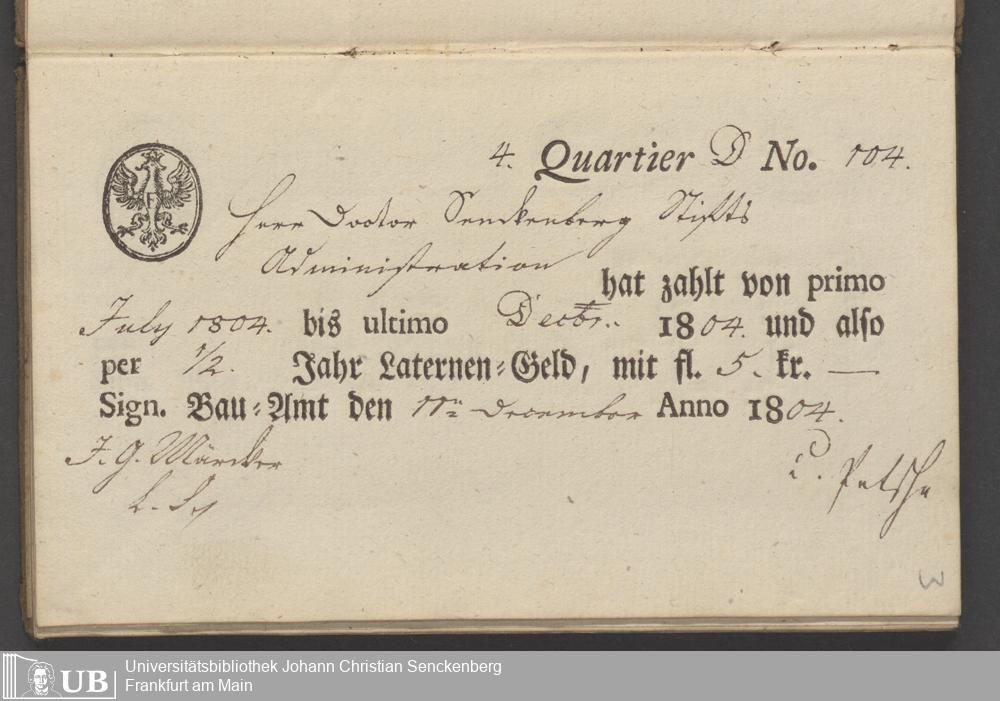 4. Quartier D No. 104.
F
Herr Doctor Senckenberg Stifts
Administration
hat zahlt von primo
July 1804. bis ultimo Decbr.. 1804. und also
per 1/2. Jahr Laternen-Geld, mit fl. 5. kr. —
Sign. Bau-Amt den 11n December Anno 1804.
J. G. Märcker
Petsche
UB
Universitätsbibliothek Johann Christian Senckenberg
Frankfurt am Main